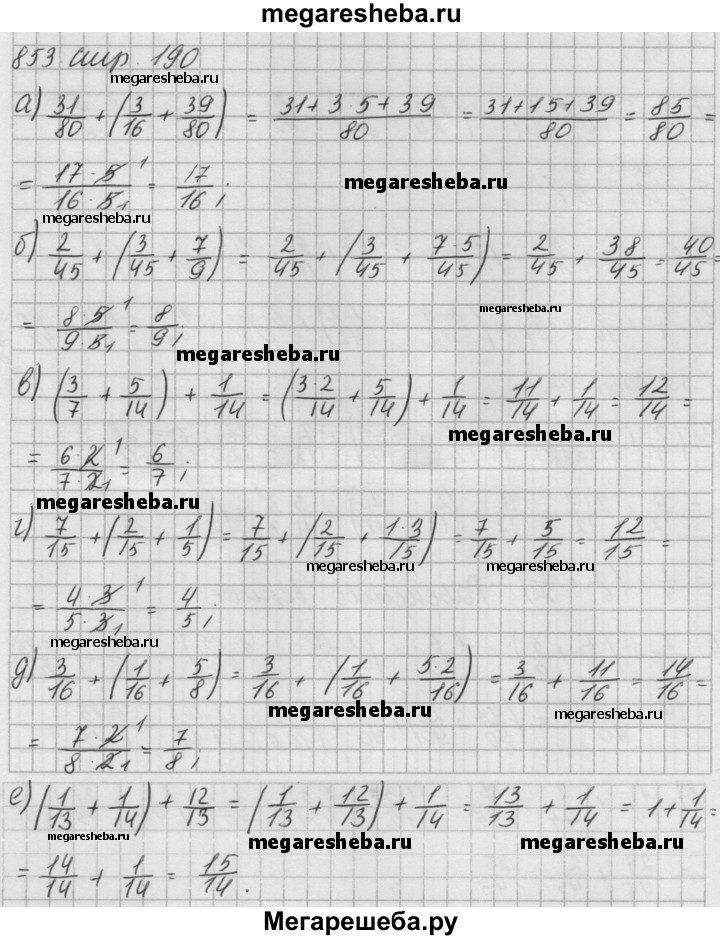 megaresheba.ru
853 стр. 190
megaresheba.ru
а) 31/80 + (3/16 + 39/80) = (31+3·5+39)/80 = (31+15+39)/80 = 85/80 =
= (17·5)/(16·5) 1 1 = 17/16;
megaresheba.ru
megaresheba.ru
б) 2/45 + (3/45 + 7/9) = 2/45 + (3/45 + (7·5)/45) = 2/45 + 38/45 = 40/45 =
megaresheba.ru
= (8·5)/(9·5) 1 1 = 8/9;
megaresheba.ru
в) (3/7 + 5/14) + 1/14 = ((3·2)/14 + 5/14) + 1/14 = 11/14 + 1/14 = 12/14 =
megaresheba.ru
= (6·2)/(7·2) 1 1 = 6/7;
megaresheba.ru
г) 7/15 + (2/15 + 1/5) = 7/15 + (2/15 + (1·3)/15) = 7/15 + 5/15 = 12/15 =
megaresheba.ru megaresheba.ru
= (4·3)/(5·3) 1 1 = 4/5;
megaresheba.ru
д) 3/16 + (1/16 + 5/8) = 3/16 + (1/16 + (5·2)/16) = 3/16 + 11/16 = 14/16 =
megaresheba.ru megaresheba.ru
= (7·2)/(8·2) 1 1 = 7/8;
megaresheba.ru
е) (1/13 + 1/14) + 12/13 = (1/13 + 12/13) + 1/14 = 13/13 + 1/14 = 1 + 1/14 =
megaresheba.ru megaresheba.ru megaresheba.ru
= 14/14 + 1/14 = 15/14.
Мегарешеба.ру